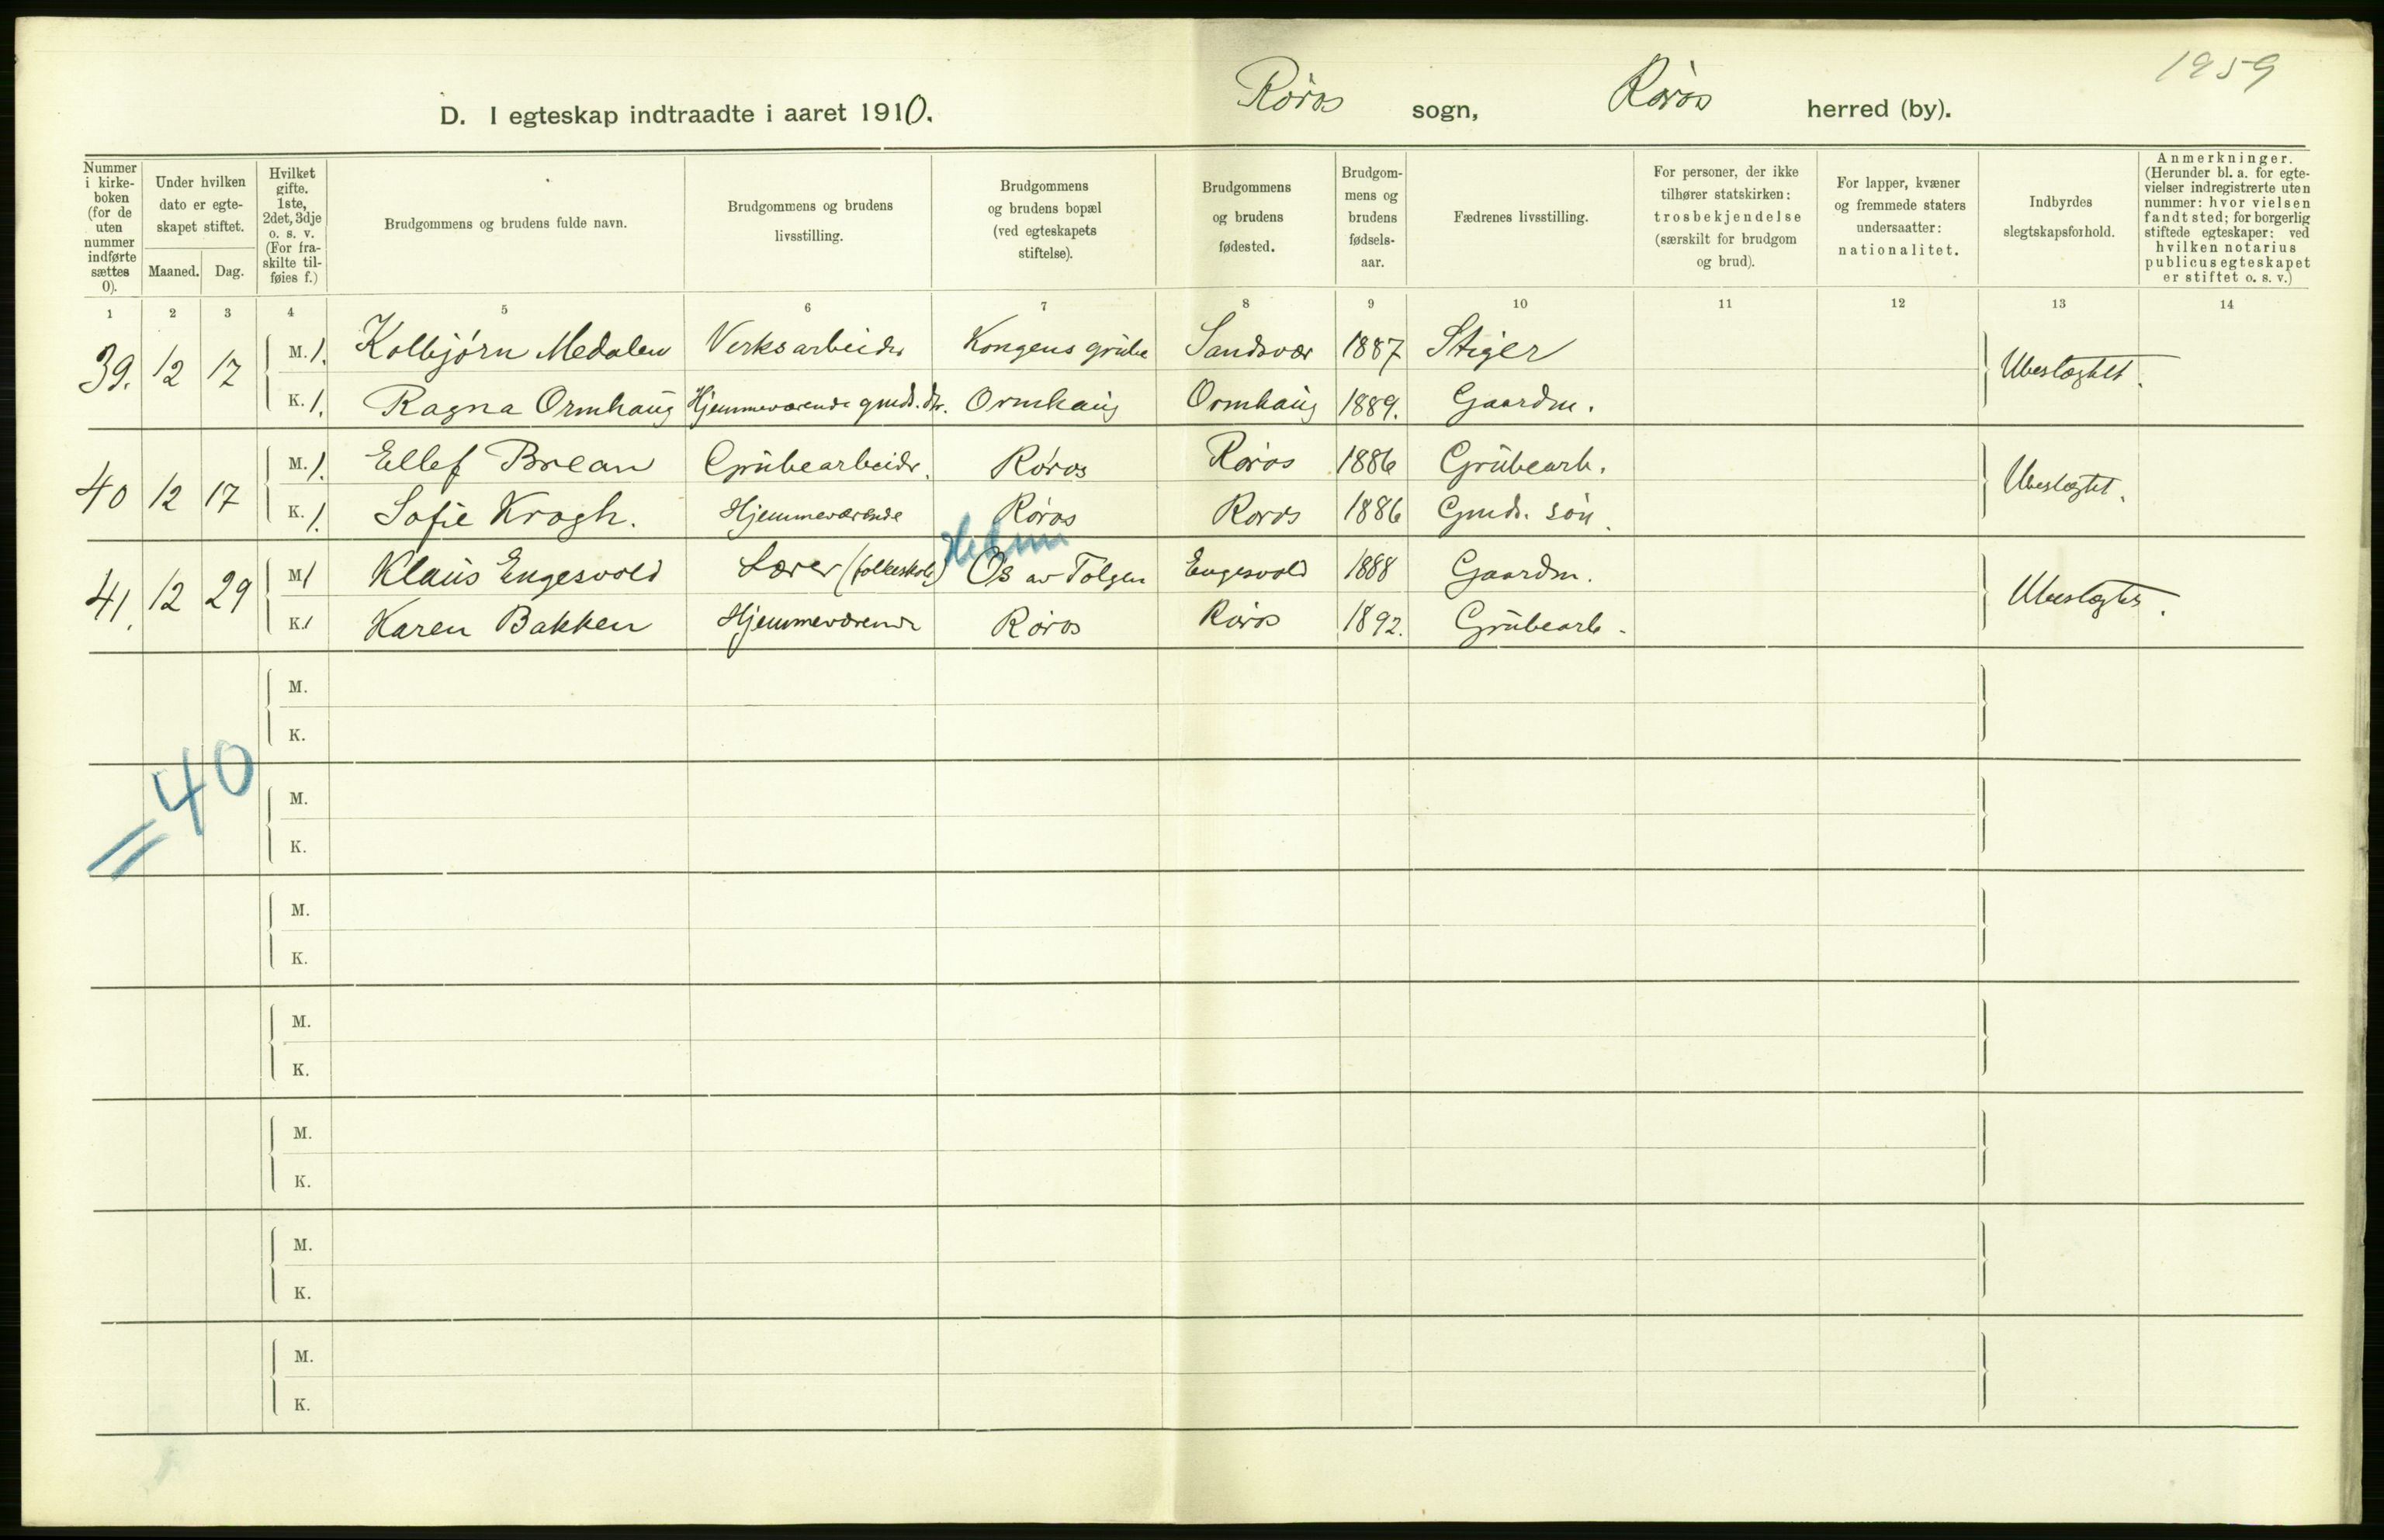 1959
D. I egteskap indtraadte i aaret 1910. Røros sogn, Røros herred (by).
Nummer i kirkeboken (for de uten nummer indførte sættes 0).
Under hvilken dato er egteskapet stiftet.
Maaned. Dag.
Hvilket gifte. 1ste, 2det, 3dje o. s. v. (For fraskilte tilføies f.)
Brudgommens og brudens fulde navn.
Brudgommens og brudens livsstilling.
Brudgommens og brudens bopæl (ved egteskapets stiftelse).
Brudgommens og brudens fødested.
Brudgommens og brudens fødselsaar.
Fædrenes livsstilling.
For personer, der ikke tilhører statskirken: trosbekjendelse (særskilt for brudgom og brud).
For lapper, kvæner og fremmede staters undersaatter: nationalitet.
Indbyrdes slegtskapsforhold.
Anmerkninger. (Herunder bl. a. for egtevielser indregistrerte uten nummer: hvor vielsen fandt sted; for borgerlig stiftede egteskaper: ved hvilken notarius publicus egteskapet er stiftet o. s. v.)
1 2 3 4 5 6 7 8 9 10 11 12 13 14
39. 12 17 M. 1. Kolbjørn Medalen Verksarbeider Kongens grube Sandsvær 1887 Stiger Ubeslægtet.
K. 1. Ragna Ormhaug Hjemmeværende gmd. dtr. Ormhaug Ormhaug 1889. Gaardm.
40 12 17 M. 1. Ellef Brean Grubearbeider. Røros Røros 1886 Grubearb. Ubeslægtet.
K. 1. Sofie Krogh. Hjemmeværende Røros Røros 1886 Gmds. søn.
41. 12 29 M 1 Klaus Engesvold Lærer (folkeskole) Os av Tolgen Engesvold 1888 Gaardm. Ubeslægtet.
K. 1 Karen Bakken Hjemmeværende Røros Røros 1892. Grubearb.
M.
K.
= 40
M.
K.
M.
K.
M.
K.
M.
K.
M.
K.
M.
K.